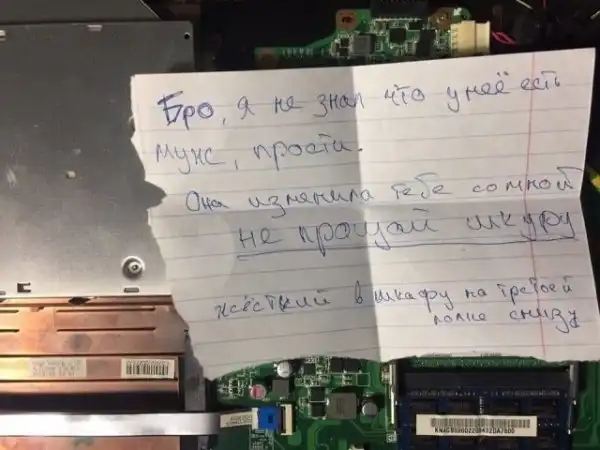 Бро, я не знал что у неё есть
муж, прости.
Она изменила тебе сомной
не прощай шкуру
жёсткий в шкафу на третьей
полке снизу